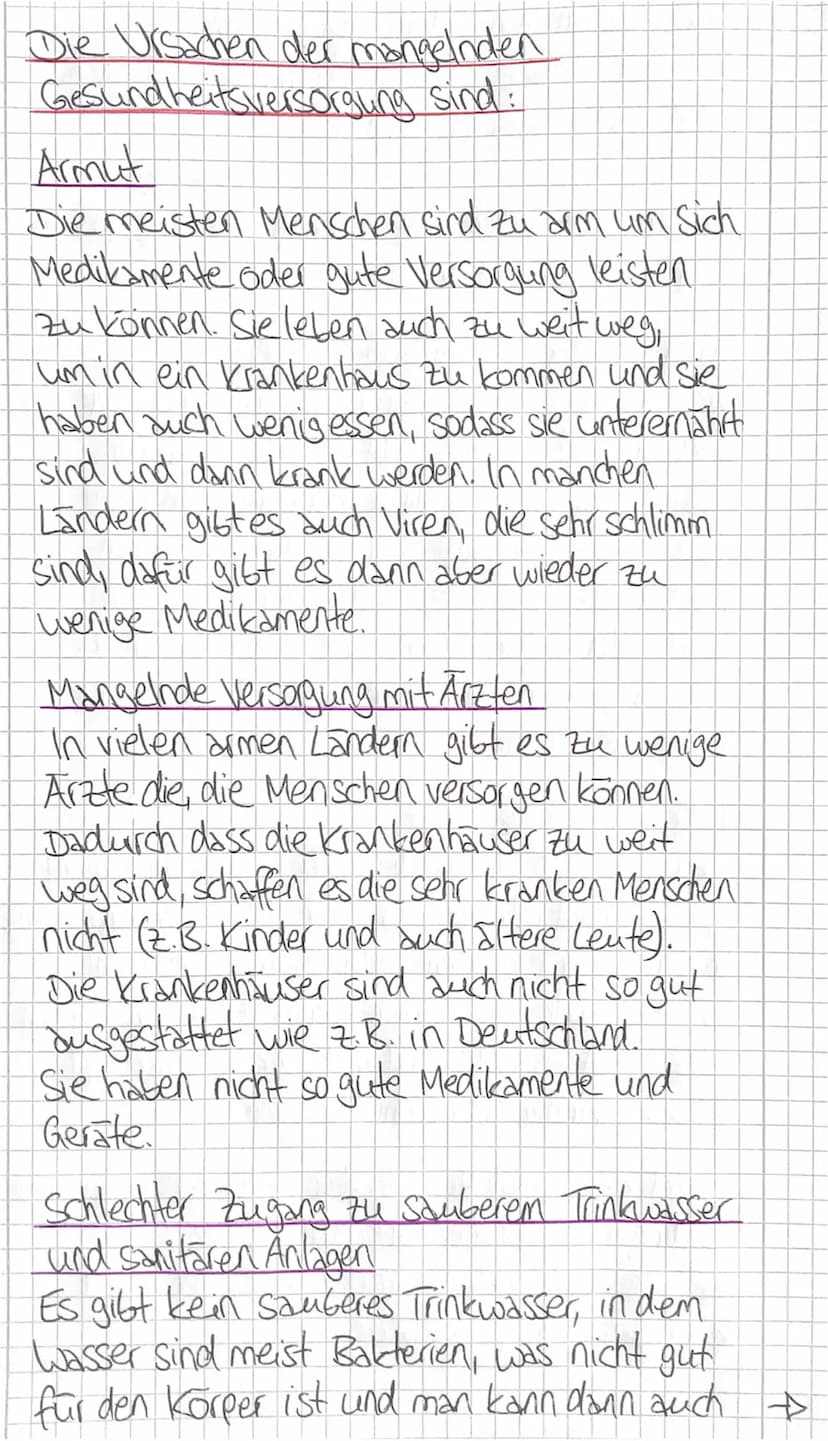 Die Ursachen der mangelnden
Gesundheitsversorgung sind:
Armut
Die meisten Menschen sind zu arm um sich
Medikamente oder gute Versorgung leisten
zu können. Sie leben auch zu weit weg,
um in ein Krankenhaus zu kommen und sie
haben auch wenig essen, sodass sie unterernährt
sind und dann krank werden. In manchen
Ländern gibt es auch Viren, die sehr schlimm
sind, dafür gibt es dann aber wieder zu
wenige Medikamente.
Mangelnde Versorgung mit Ärzten
In vielen armen Ländern gibt es zu wenige
Ärzte die, die Menschen versorgen können.
Dadurch dass die Krankenhäuser zu weit
weg sind, schaffen es die sehr kranken Menschen
nicht (z.B. Kinder und auch ältere Leute).
Die Krankenhäuser sind auch nicht so gut
ausgestattet wie z.B. in Deutschland.
Sie haben nicht so gute Medikamente und
Geräte.
Schlechter Zugang zu sauberem Trinkwasser
und sanitären Anlagen
Es gibt kein sauberes Trinkwasser, in dem
Wasser sind meist Bakterien, was nicht gut
für den Körper ist und man kann dann auch →